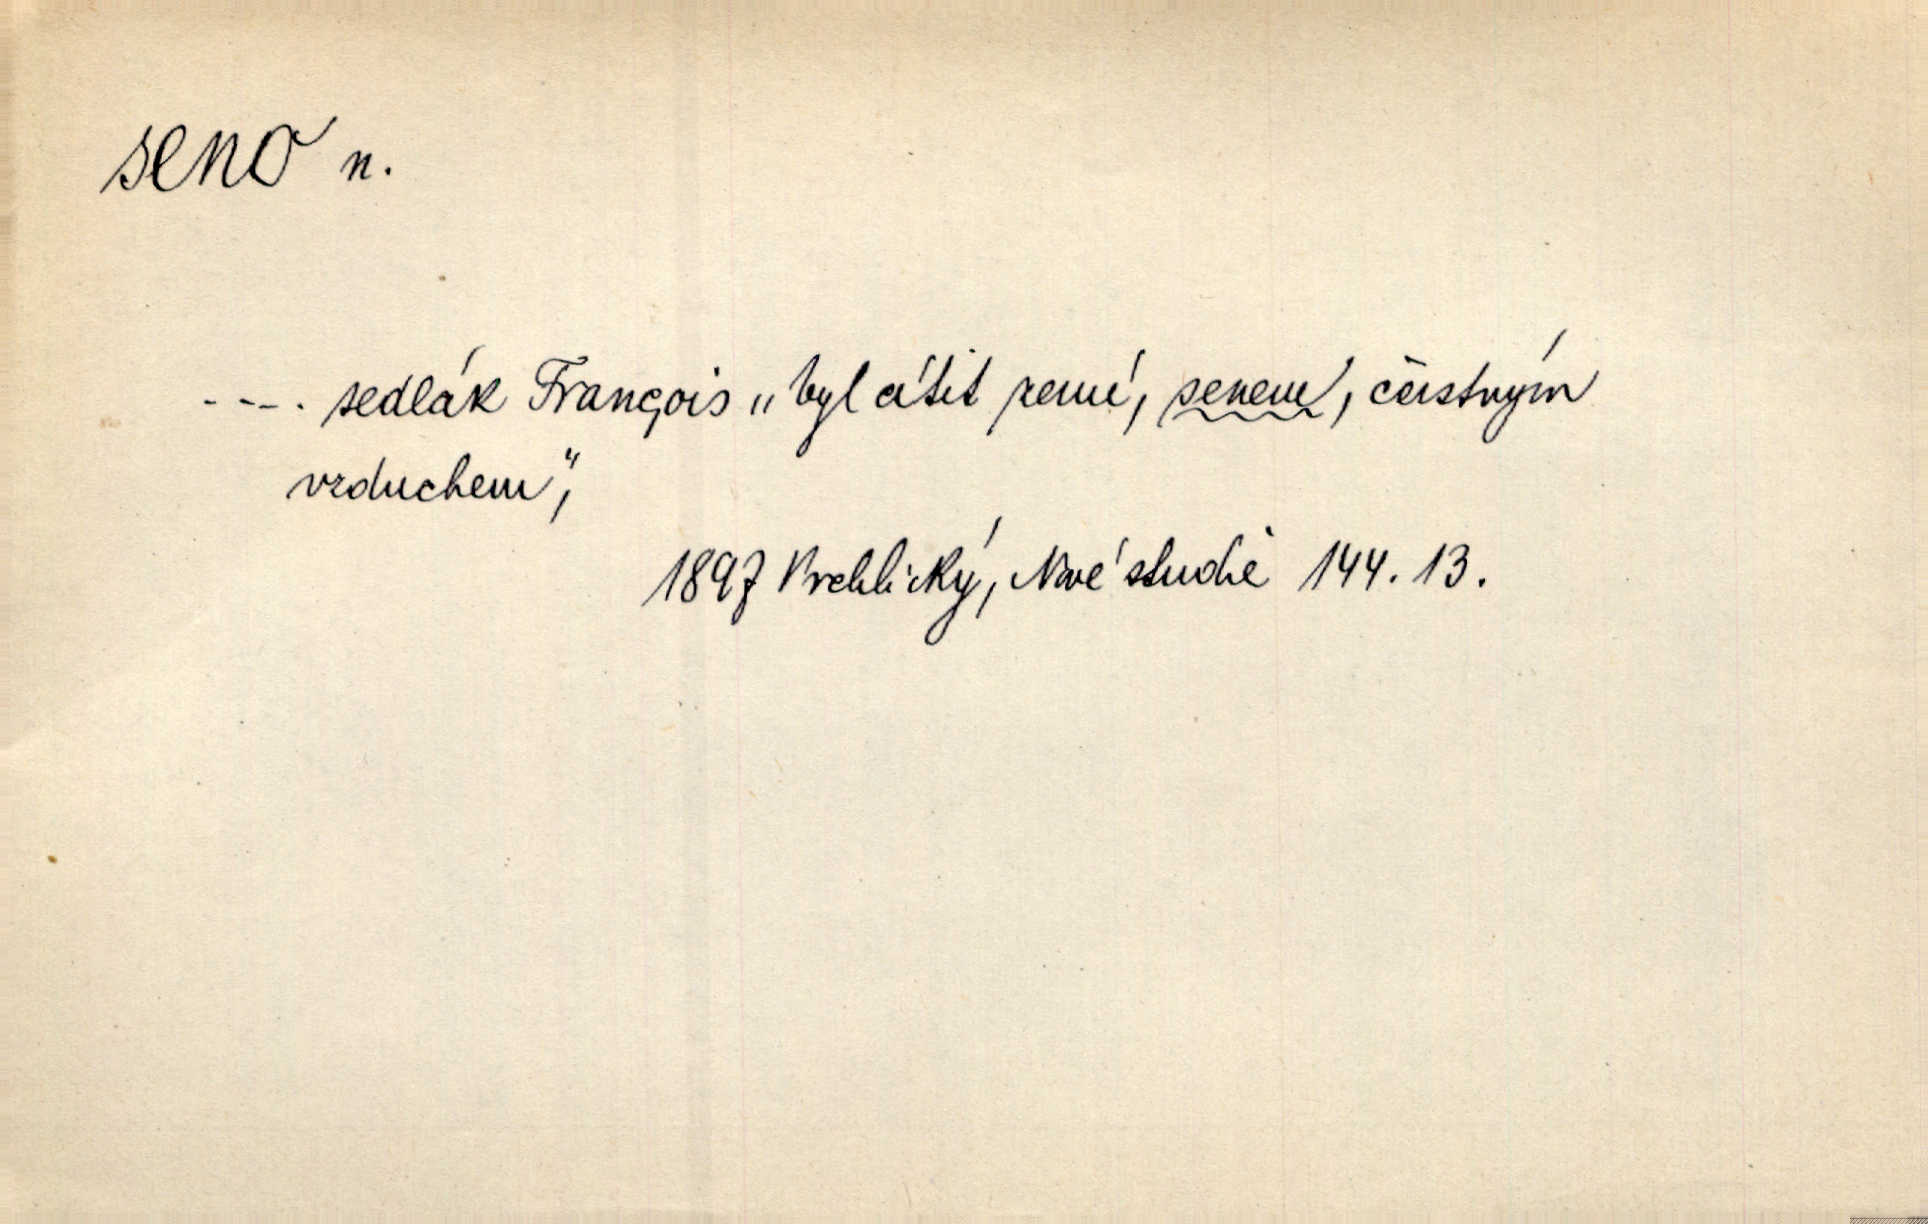 seno n.
---. sedlák François „byl cítit zemí, senem, čerstvým
vzduchem",
1897 Vrchlický, Nové studie 144.13.